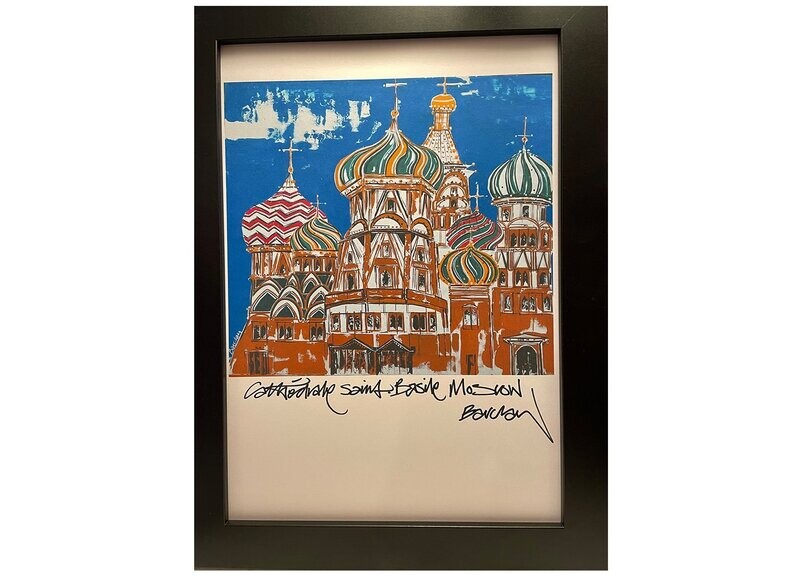 Cathédrale Saint. Basile Moscow
Barclay